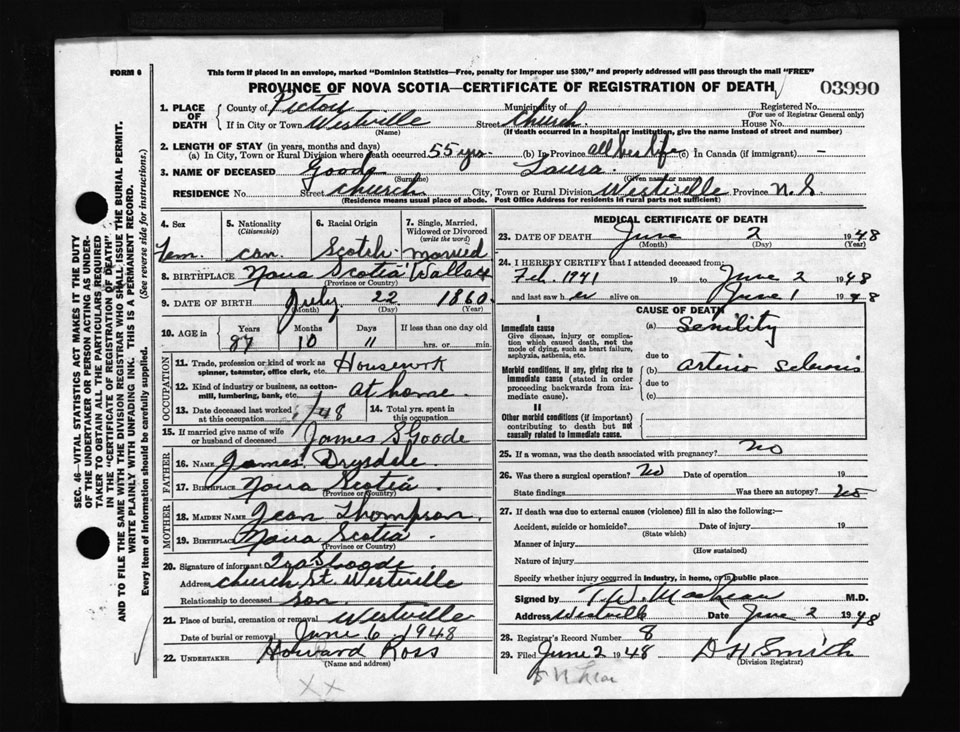 FORM 6
This form if placed in an envelope, marked "Dominion Statistics—Free, penalty for improper use $300," and properly addressed will pass through the mail "FREE"
PROVINCE OF NOVA SCOTIA—CERTIFICATE OF REGISTRATION OF DEATH
03990
1. PLACE OF DEATH County of Pictou Municipality of Registered No.
(For use of Registrar General only)
If in City or Town Westville Street Church House No.
(Name) (If death occurred in a hospital or institution, give the name instead of street and number)
2. LENGTH OF STAY (in years, months and days)
(a) In City, Town or Rural Division where death occurred 55 yrs. (b) In Province all her life (c) In Canada (if immigrant) —
3. NAME OF DECEASED Goode Laura
(Surname) (Given name or names)
RESIDENCE No. Street Church City, Town or Rural Division Westville Province N.S.
(Residence means usual place of abode. Post Office Address for residents in rural parts not sufficient)
4. Sex 5. Nationality (Citizenship) 6. Racial Origin 7. Single, Married, Widowed or Divorced (write the word)
Fem. Can. Scotch Married
8. BIRTHPLACE Nova Scotia Wallace
(Province or Country)
9. DATE OF BIRTH July 22 1860
(Month) (Day) (Year)
10. AGE in Years Months Days If less than one day old
87 10 11 hrs. or min.
OCCUPATION
11. Trade, profession or kind of work as spinner, teamster, office clerk, etc. Housework
12. Kind of industry or business, as cotton-mill, lumbering, bank, etc. at home
13. Date deceased last worked at this occupation /48 14. Total yrs. spent in this occupation
15. If married give name of wife or husband of deceased James S Goode
FATHER
16. NAME James Drysdale
17. BIRTHPLACE Nova Scotia
(Province or Country)
MOTHER
18. MAIDEN NAME Jean Thompson
19. BIRTHPLACE Nova Scotia
(Province or Country)
20. Signature of informant Goode
Address Church St Westville
Relationship to deceased son
21. Place of burial, cremation or removal Westville
Date of burial or removal June 6 1948
22. UNDERTAKER Howard Ross
(Name and address)
XX
MEDICAL CERTIFICATE OF DEATH
23. DATE OF DEATH June 2 1948
(Month) (Day) (Year)
24. I HEREBY CERTIFY that I attended deceased from:
Feb. 1941 19 to June 2 1948
and last saw her alive on June 1 1948
CAUSE OF DEATH
I
Immediate cause (a) Senility
Give disease, injury or complication which caused death, not the mode of dying, such as heart failure, asphyxia, asthenia, etc.
due to
Morbid conditions, if any, giving rise to immediate cause (stated in order proceeding backwards from immediate cause).
(b) Arterio Sclerosis
due to
(c)
II
Other morbid conditions (if important) contributing to death but not causally related to immediate cause.
25. If a woman, was the death associated with pregnancy? No
26. Was there a surgical operation? No Date of operation 19
State findings Was there an autopsy? No
27. If death was due to external causes (violence) fill in also the following:—
Accident, suicide or homicide? Date of injury 19
(State which)
Manner of injury
(How sustained)
Nature of injury
Specify whether injury occurred in industry, in home, or in public place
Signed by M.D.
Address Westville Date June 2 1948
28. Registrar's Record Number 8
29. Filed June 2 1948 D H Smith
(Division Registrar)
SEC. 46—VITAL STATISTICS ACT MAKES IT THE DUTY
OF THE UNDERTAKER OR PERSON ACTING AS UNDER-
TAKER TO OBTAIN ALL THE PARTICULARS REQUIRED
IN THE "CERTIFICATE OF REGISTRATION OF DEATH"
AND TO FILE THE SAME WITH THE DIVISION REGISTRAR WHO SHALL ISSUE THE BURIAL PERMIT.
WRITE PLAINLY WITH UNFADING INK. THIS IS A PERMANENT RECORD.
Every item of information should be carefully supplied. (See reverse side for instructions.)